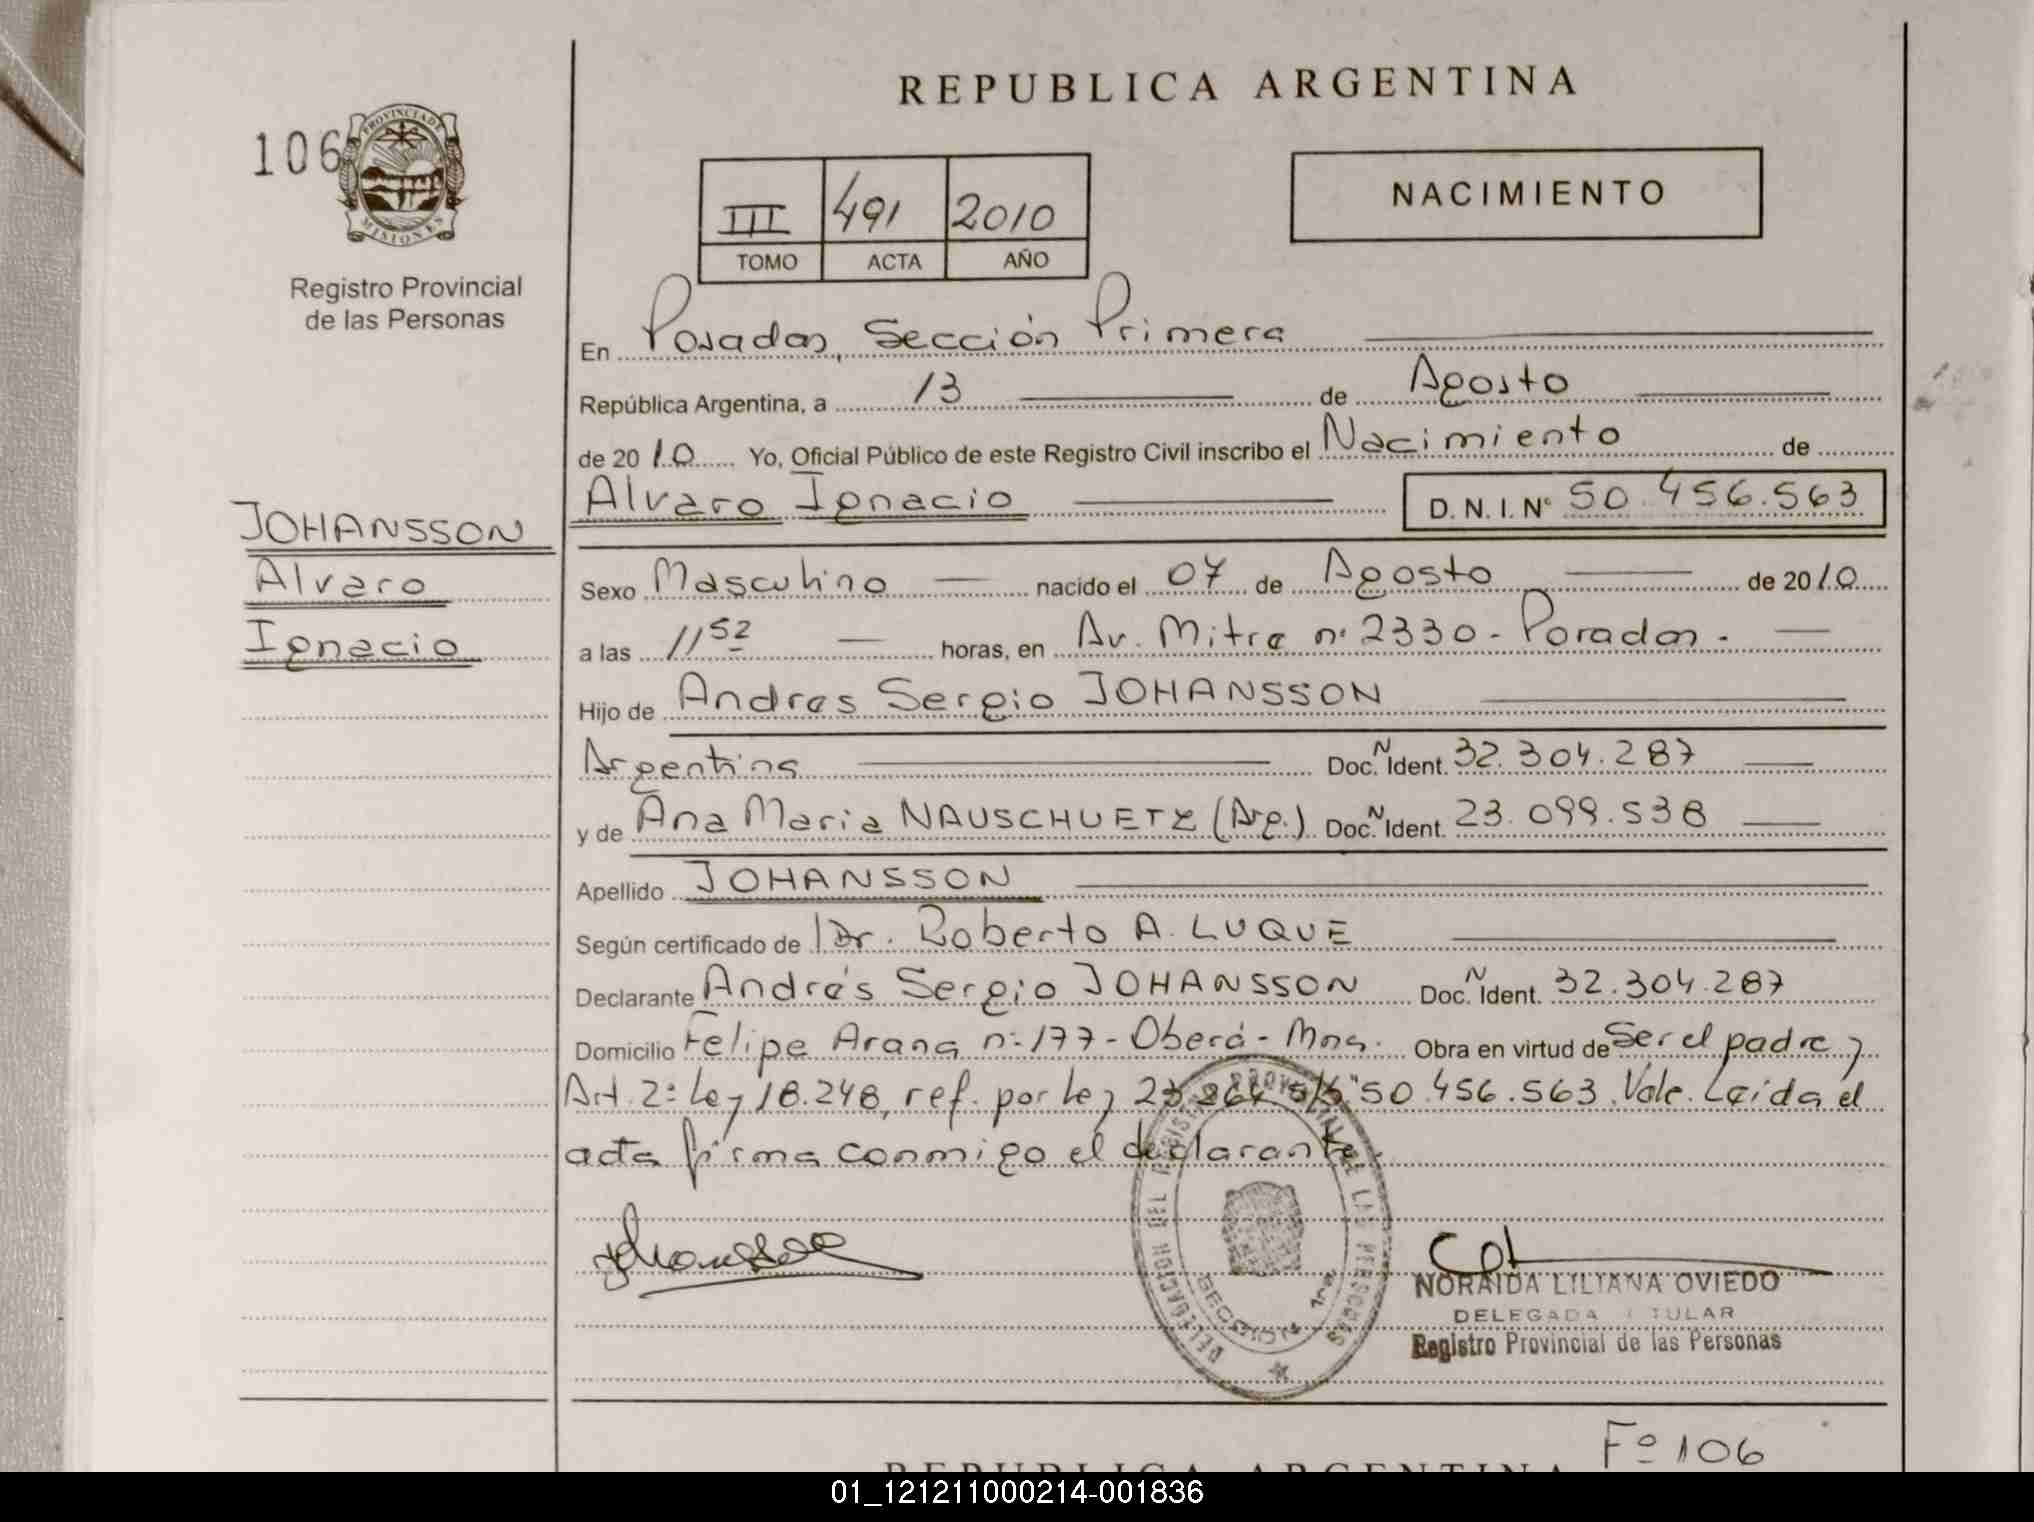 REPUBLICA ARGENTINA
106
PROVINCIA DE
MISIONES
Registro Provincial
de las Personas
III 491 2010
TOMO ACTA AÑO
NACIMIENTO
En Posadas, Sección Primera
República Argentina, a 13 de Agosto
de 2010 Yo, Oficial Público de este Registro Civil inscribo el Nacimiento de
Alvaro Ignacio D. N. I. N° 50.456.563
JOHANSSON
Alvaro
Ignacio
Sexo Masculino nacido el 07 de Agosto de 2010
a las 11 52 horas, en Av. Mitre n° 2330 - Posadas -
Hijo de Andres Sergio JOHANSSON
Argentina Doc. Ñ Ident. 32.304.287
y de Ana Maria NAUSCHUETZ (Arg.) Doc. Ñ Ident. 23.099.538
Apellido JOHANSSON
Según certificado de Dr. Roberto A. LUQUE
Declarante Andrés Sergio JOHANSSON Doc. Ñ Ident. 32.304.287
Domicilio Felipe Arana n° 177 - Oberá - Mnes. Obra en virtud de Ser el padre y
Art. 2° Ley 18.248, ref. por Ley s/r "50.456.563. Vale. Leída el
acta firma conmigo el declarante.
DELEGACION DEL REGISTRO PROVINCIAL DE LAS PERSONAS
SECCION 1ra
NORAIDA LILIANA OVIEDO
DELEGADA TITULAR
Registro Provincial de las Personas
F° 106
REPUBLICA ARGENTINA
01_121211000214-001836